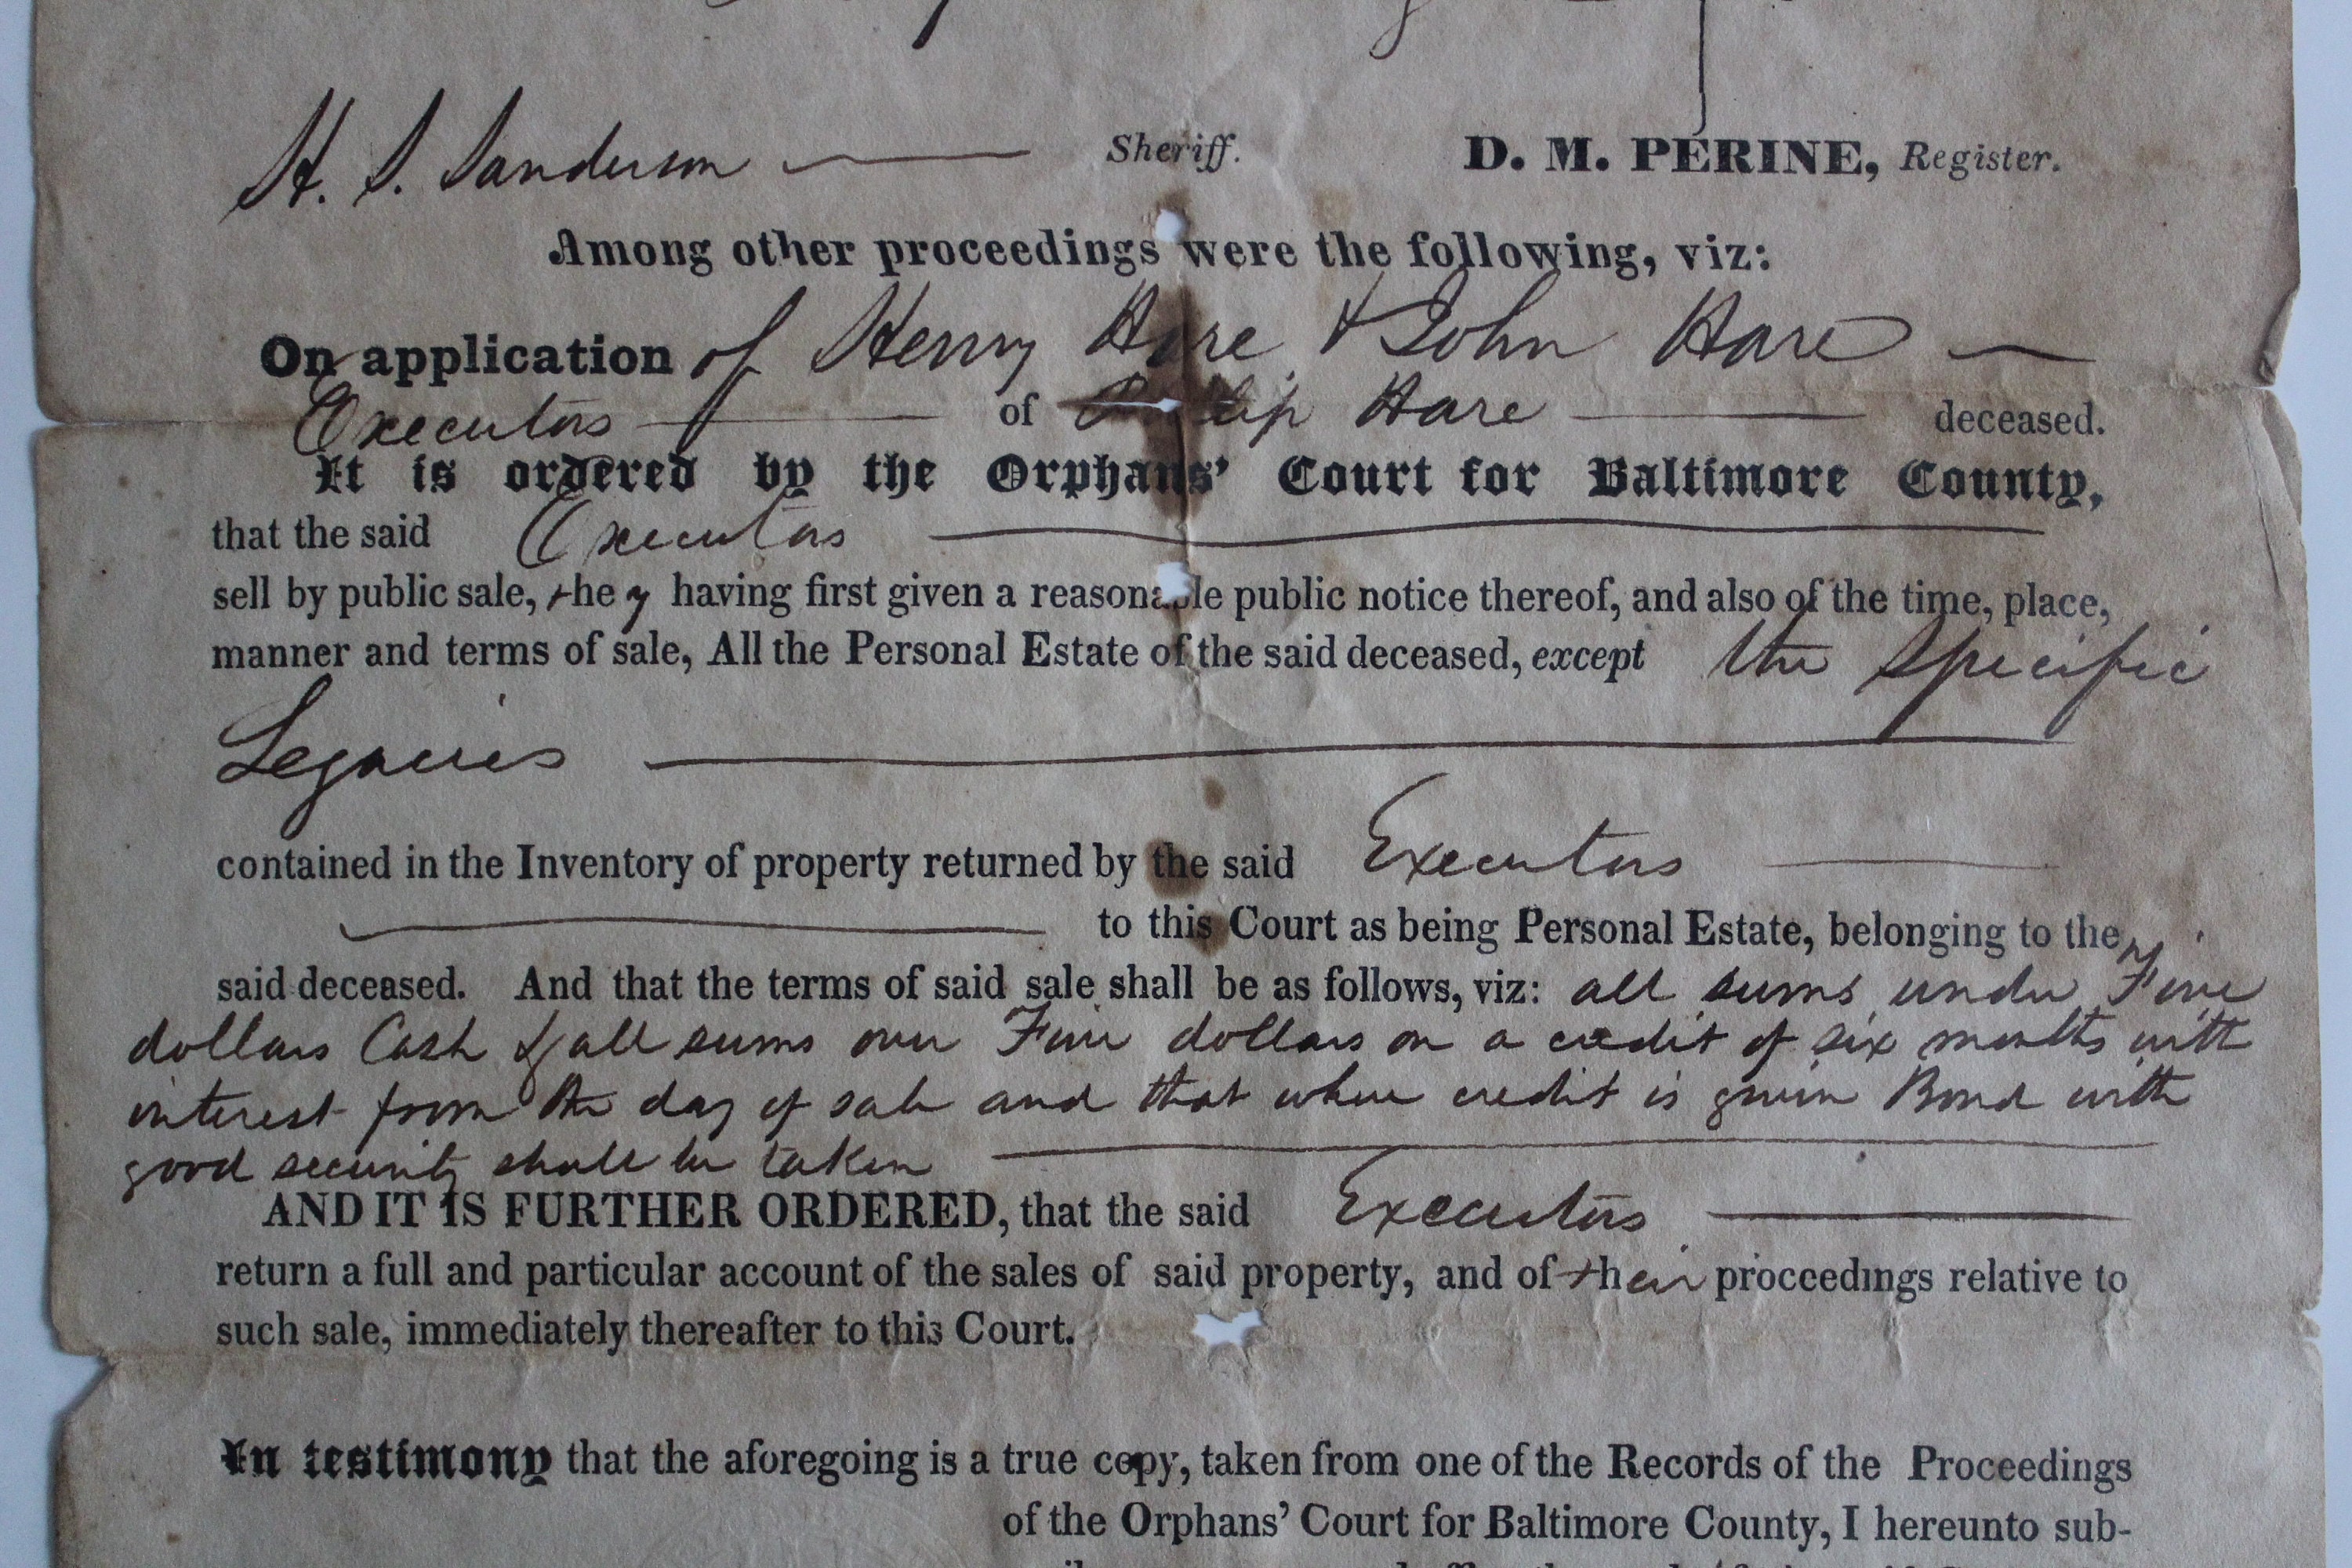 H. S. Sanderson Sheriff. D. M. PERINE, Register.
Among other proceedings were the following, viz:
On application of Henry Hare & John Hare
Executors of Philip Hare deceased.
It is ordered by the Orphans' Court for Baltimore County,
that the said Executors
sell by public sale, they having first given a reasonable public notice thereof, and also of the time, place,
manner and terms of sale, All the Personal Estate of the said deceased, except the Specific
Legacies
contained in the Inventory of property returned by the said Executors
to this Court as being Personal Estate, belonging to the
said deceased. And that the terms of said sale shall be as follows, viz: all sums under Five
dollars Cash & all sums over Five dollars on a credit of six months with
interest from the day of sale and that where credit is given Bond with
good security shall be taken
AND IT IS FURTHER ORDERED, that the said Executors
return a full and particular account of the sales of said property, and of their proceedings relative to
such sale, immediately thereafter to this Court.
In testimony that the aforegoing is a true copy, taken from one of the Records of the Proceedings
of the Orphans' Court for Baltimore County, I hereunto sub-